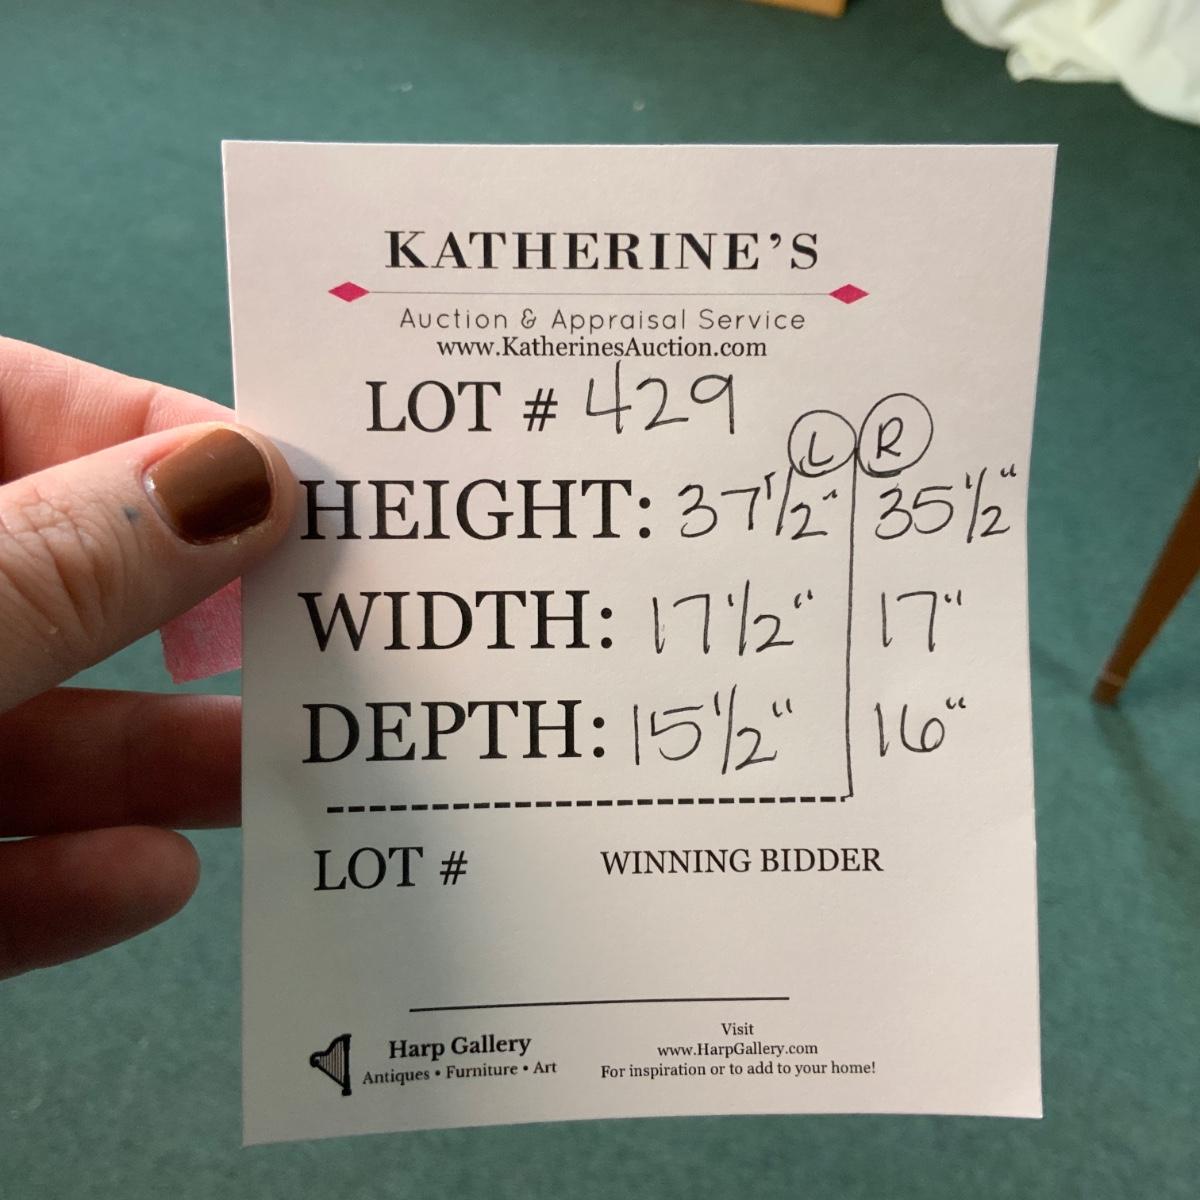 KATHERINE'S
Auction & Appraisal Service
www.KatherinesAuction.com
LOT # 429
L R
HEIGHT: 37 1/2" 35 1/2"
WIDTH: 17 1/2" 17"
DEPTH: 15 1/2" 16"
LOT # WINNING BIDDER
Harp Gallery
Antiques • Furniture • Art
Visit
www.HarpGallery.com
For inspiration or to add to your home!